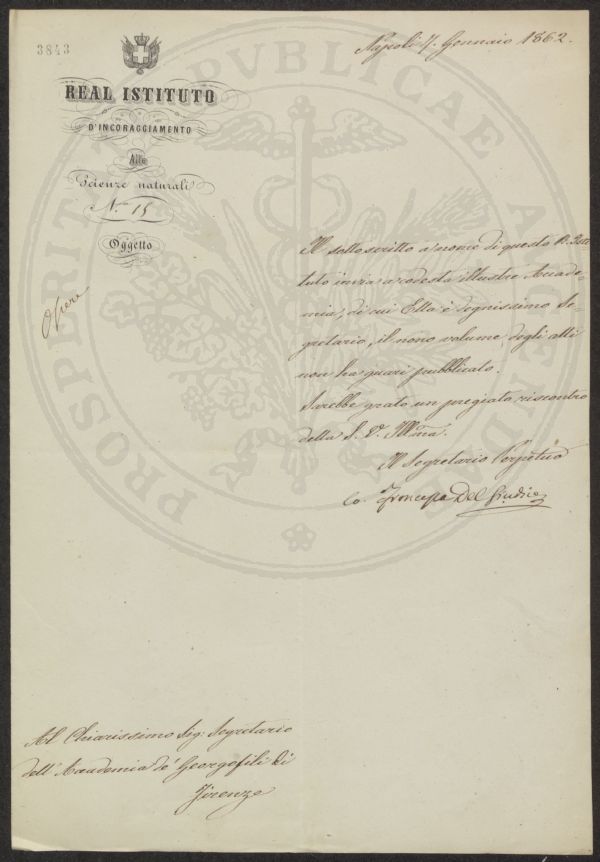 3843
Napoli 4. Gennaio 1862.
REAL ISTITUTO
D'INCORAGGIAMENTO
Alle
Scienze naturali
N.° 15
Oggetto
Il sottoscritto a nome di questo R. Isti
tuto invia a codesta illustre Accade-
mia, di cui Ella è degnissimo Se-
gretario, il nono volume degli atti
non ha guari pubblicato.
Sarebbe grato un pregiato riscontro
della S. V. Illma.
Il Segretario Perpetuo
Francesco Del Giudice
Al Chiarissimo Sig: Segretario
dell'Accademia de' Georgofili di
Firenze
PROSPERITATI PUBLICAE AUGENDAE